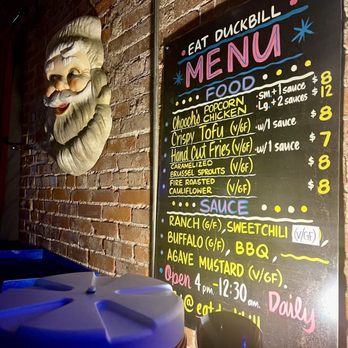 EAT DUCKBILL
MENU
FOOD
POPCORN - sm. + 1 sauce $8
CHICKEN - Lg. + 2 sauces $12
Crispy Tofu (V/GF) - w/1 sauce $8
Hand Cut Fries (V/GF) - w/1 sauce $7
CARAMELIZED
BRUSSEL SPROUTS (V/GF) $8
FIRE ROASTED
CAULIFLOWER (V/GF) $8
SAUCE
RANCH (G/F), SWEETCHILI (V/GF)
BUFFALO (G/F), BBQ
AGAVE MUSTARD (V/GF).
Open 4 pm. - 12:30 am. Daily